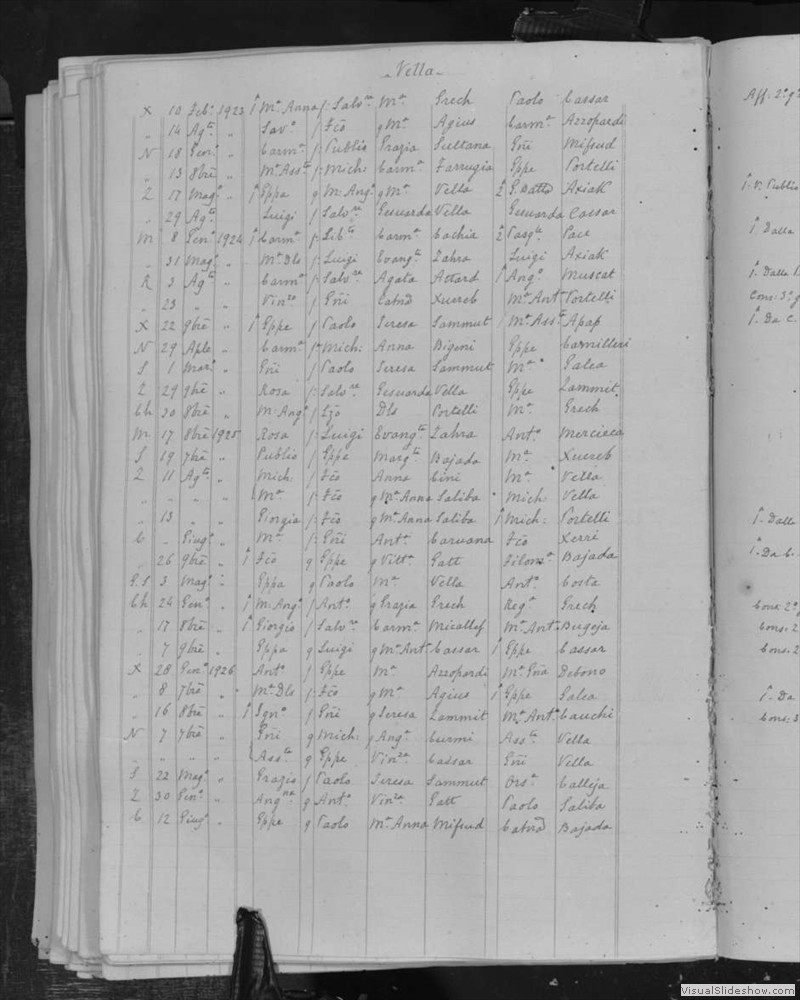 Vella
X 10 Feb. 1923 1 Ma. Anna f: Salvre Ma. Grech Paolo Cassar
„ 14 Agto „ Savo f Fcō q Ma. Agius Carma Azzopardi
N 18 Geno „ Carmo f: Publio Grazia Sultana Gni Mifsud
„ 13 8brē „ Ma. Assta f: Mich: Carma Farrugia Gppe Portelli
Z 17 Mago „ 1 Gppa q M: Ango q Ma Vella 2 G. Batta Axiak
„ 29 Agto „ Luigi f Salvre Gesuarda Vella Gesuarda Cassar
M 8 Geno 1924 1 Carmo f: Libto Carma Cachia 2 Pasqle Pace
„ 31 Mago „ Ma. Dls f: Luigi Evangta Zahra Luigi Axiak
R 3 Agto „ Carmo f: Salvre Agata Attard 1 Ango Muscat
„ 23 „ „ Vinzo f Gni Catnā Xuereb Ma. Anta Portelli
X 22 9brē „ 1 Gppe f Paolo Teresa Sammut 1 Ma. Assta Apap
N 29 Aple „ Carmo f: Mich: Anna Bigeni Gppe Cornilleri
S 1 Mar. „ Gni f Paolo Teresa Sammut Ma. Galea
Z 29 9brē „ Rosa f: Salvre Gesuarda Vella Gppe Zammit
Ch 30 8brē „ M: Ango f Lzo Dls Portelli Ma. Grech
M 17 8brē 1925 Rosa f: Luigi Evangta Zahra Anto Mercieca
S 19 7brē „ Publio f Gppe Margta Bajada Ma. Xuereb
Z 11 Agto „ Mich: f Fcō Anna Cini Ma. Vella
„ „ „ „ Ma. f: Fcō q Ma. Anna Saliba Mich: Vella
„ 13 „ Giorgia f: Fcō q Ma. Anna Saliba 1 Mich: Portelli
C „ Giugo „ Ma. f: Gni Anta Caruana Fcō Xerri
„ 26 9brē „ 1 Fcō q Gppe q Vitta Gatt Filoma Bajada
G.S 3 Mago „ Gppa q Paolo Ma. Vella Anto Costa
Ch 24 Geno „ 1 M: Ango f Anto q Grazia Grech Rega Grech
„ 17 8brē „ 1 Giorgio f Salvre Carma Micallef Ma. Anta Bugeja
„ 7 9brē „ Gppa q Luigi q Ma. Anta Cassar 1 Gppe Cassar
X 28 Geno 1926 Anto f Gppe Ma. Azzopardi Ma. Gña Debono
„ 8 7brē „ Ma. Dls f: Fcō q Ma. Agius 1 Gppe Galea
„ 16 8brē „ 1 Igno f Gni q Teresa Zammit Ma. Anta Cauchi
N 7 7brē „ Gni q Mich: q Anga Curmi Assta Vella
„ „ „ „ Assta q Gppe Vinza Cassar Gni Vella
S 22 Mago „ Grazio f Paolo Teresa Sammut Orsa Calleja
Z 30 Geno „ Angna q Anto Vinza Gatt Paolo Saliba
C 12 Giugo Gppe q Paolo Ma. Anna Mifsud Catnā Bajada
Aff: 2o g
1. V. Publio
1. Dalla
1. Dalla
Cons: 3o g
1. Da C.
1. Dalla
1. Da C.
Cons: 2o
Cons: 2
Cons: 2
1. Da
Cons: 3
VisualSlideshow.com